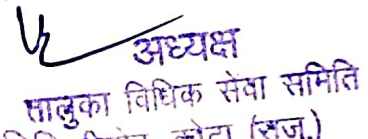 अध्यक्ष
तालुका विधिक सेवा समिति
कोटा (राज.)